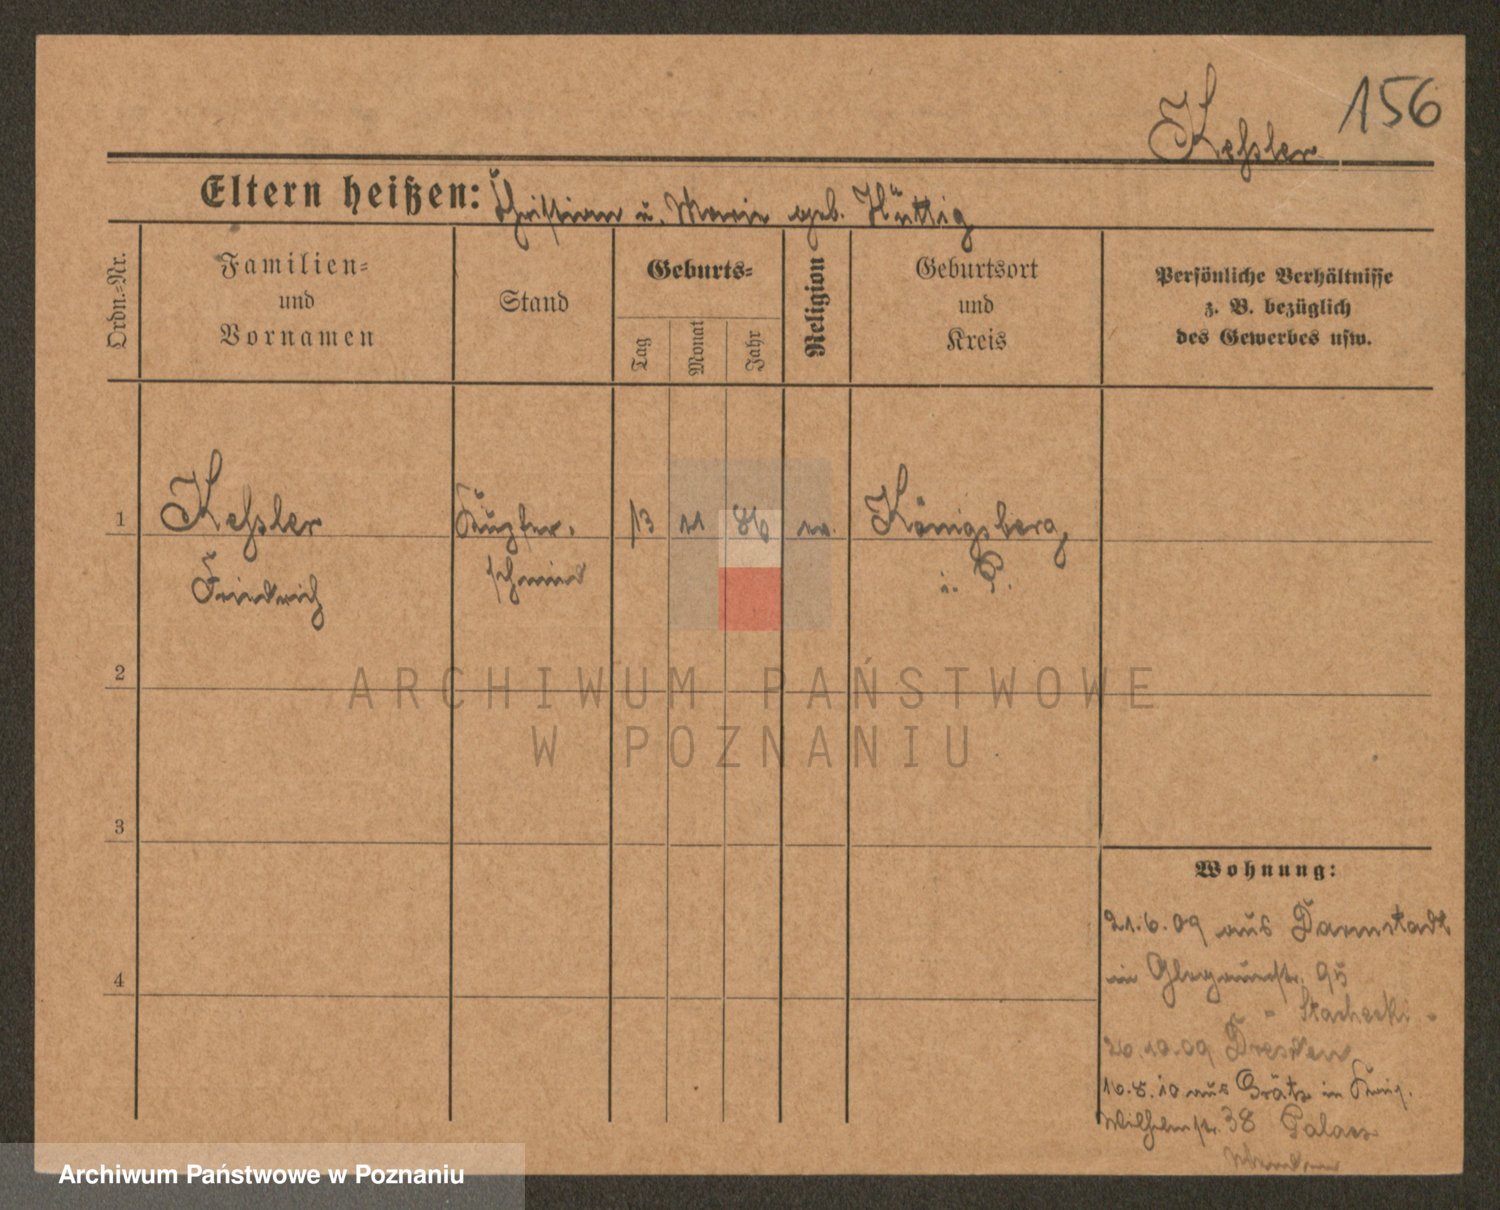 156
Keßler
Eltern heißen: Christian u. Marie geb. Hüttig
Ordn.-Nr.
Familien-
und
Vornamen
Stand
Geburts-
Tag
Monat
Jahr
Religion
Geburtsort
und
Kreis
Persönliche Verhältnisse
z. B. bezüglich
des Gewerbes usw.
1
Keßler
Friedrich
Kupfer-
schmied
13
11
86
ev.
Königsberg
i. P.
2
3
4
ARCHIWUM PAŃSTWOWE
W POZNANIU
Wohnung:
21.6.09 aus Darmstadt
in Glogauerstr. 95
" Stachecki "
20.10.09 Dresden
16.8.10 aus Grätz in
Wilhelmstr. 38
Archiwum Państwowe w Poznaniu